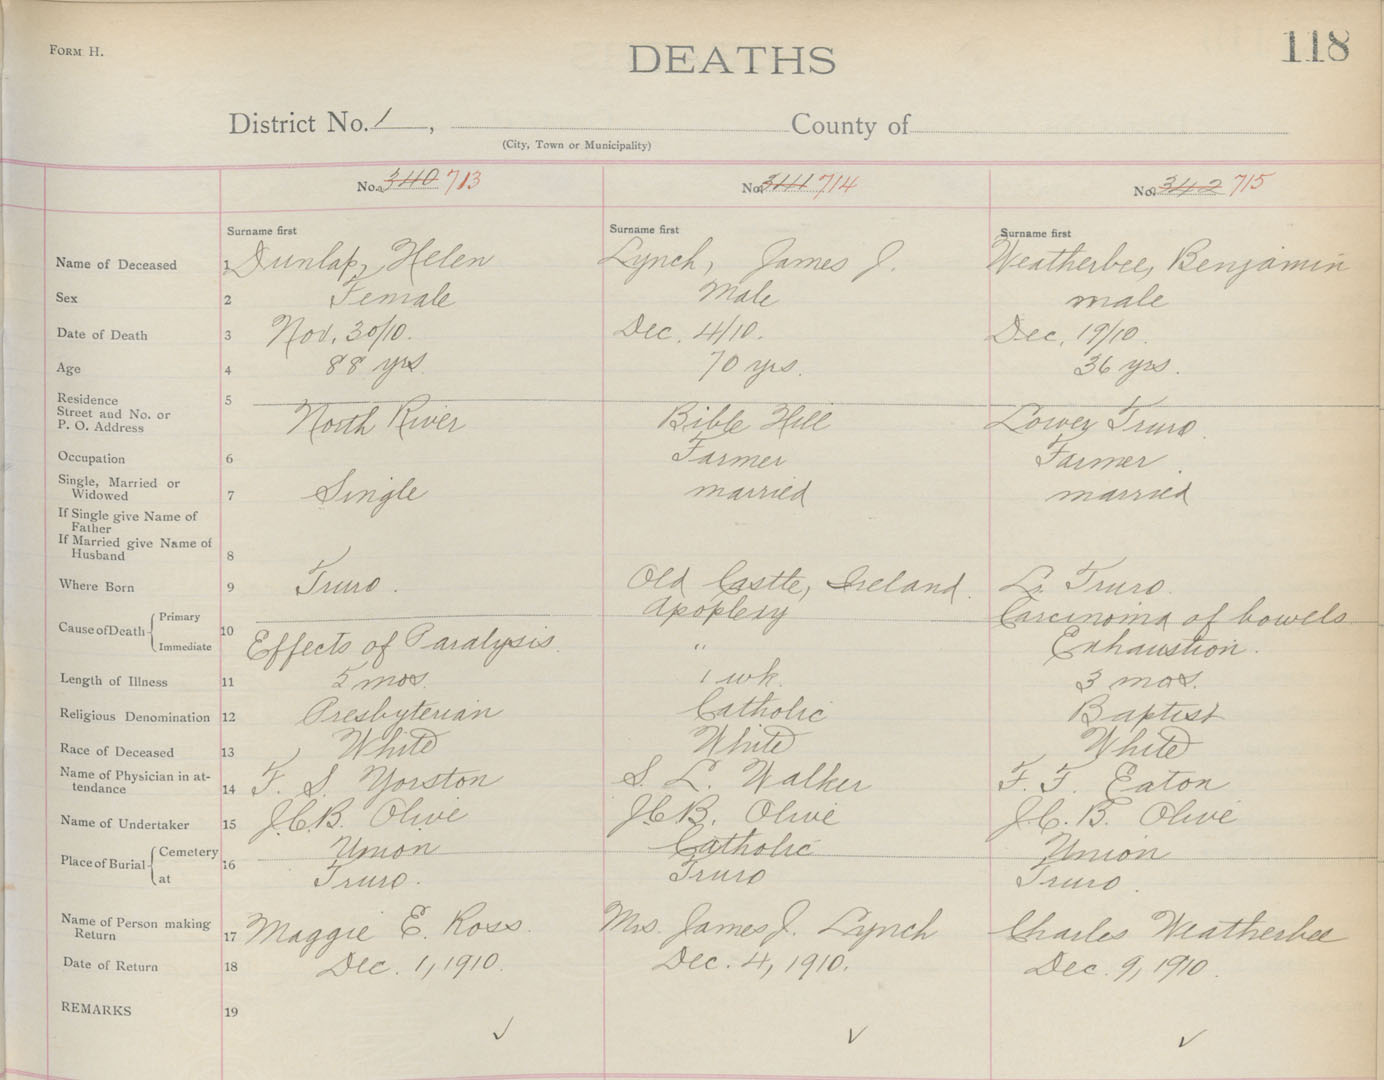 FORM H.
DEATHS
118
District No. 1, County of
(City, Town or Municipality)
No. 340 713 No. 341 714 No. 342 715
Surname first Surname first Surname first
Name of Deceased 1 Dunlap, Helen Lynch, James J. Weatherbee, Benjamin
Sex 2 Female Male male
Date of Death 3 Nov. 30/10. Dec. 4/10. Dec. 19/10.
Age 4 88 yrs. 70 yrs. 36 yrs.
Residence 5
Street and No. or
P. O. Address North River Bible Hill Lower Truro.
Occupation 6 Farmer Farmer.
Single, Married or
Widowed 7 Single married married
If Single give Name of
Father
If Married give Name of
Husband 8
Where Born 9 Truro. Old Castle, Ireland. Lr. Truro.
Cause of Death Primary 10 Apoplexy Carcinoma of bowels
Immediate Effects of Paralysis. " Exhaustion.
Length of Illness 11 5 mos. 1 wk. 3 mos.
Religious Denomination 12 Presbyterian Catholic Baptist
Race of Deceased 13 White White White
Name of Physician in at-
tendance 14 F. S. Yorston S. L. Walker F. F. Eaton
Name of Undertaker 15 J.C.B. Olive J.C.B. Olive J.C.B. Olive
Place of Burial Cemetery 16 Union Catholic Union
at Truro. Truro Truro.
Name of Person making
Return 17 Maggie E. Ross. Mrs. James J. Lynch Charles Weatherbee
Date of Return 18 Dec. 1, 1910. Dec. 4, 1910. Dec. 9, 1910.
REMARKS 19